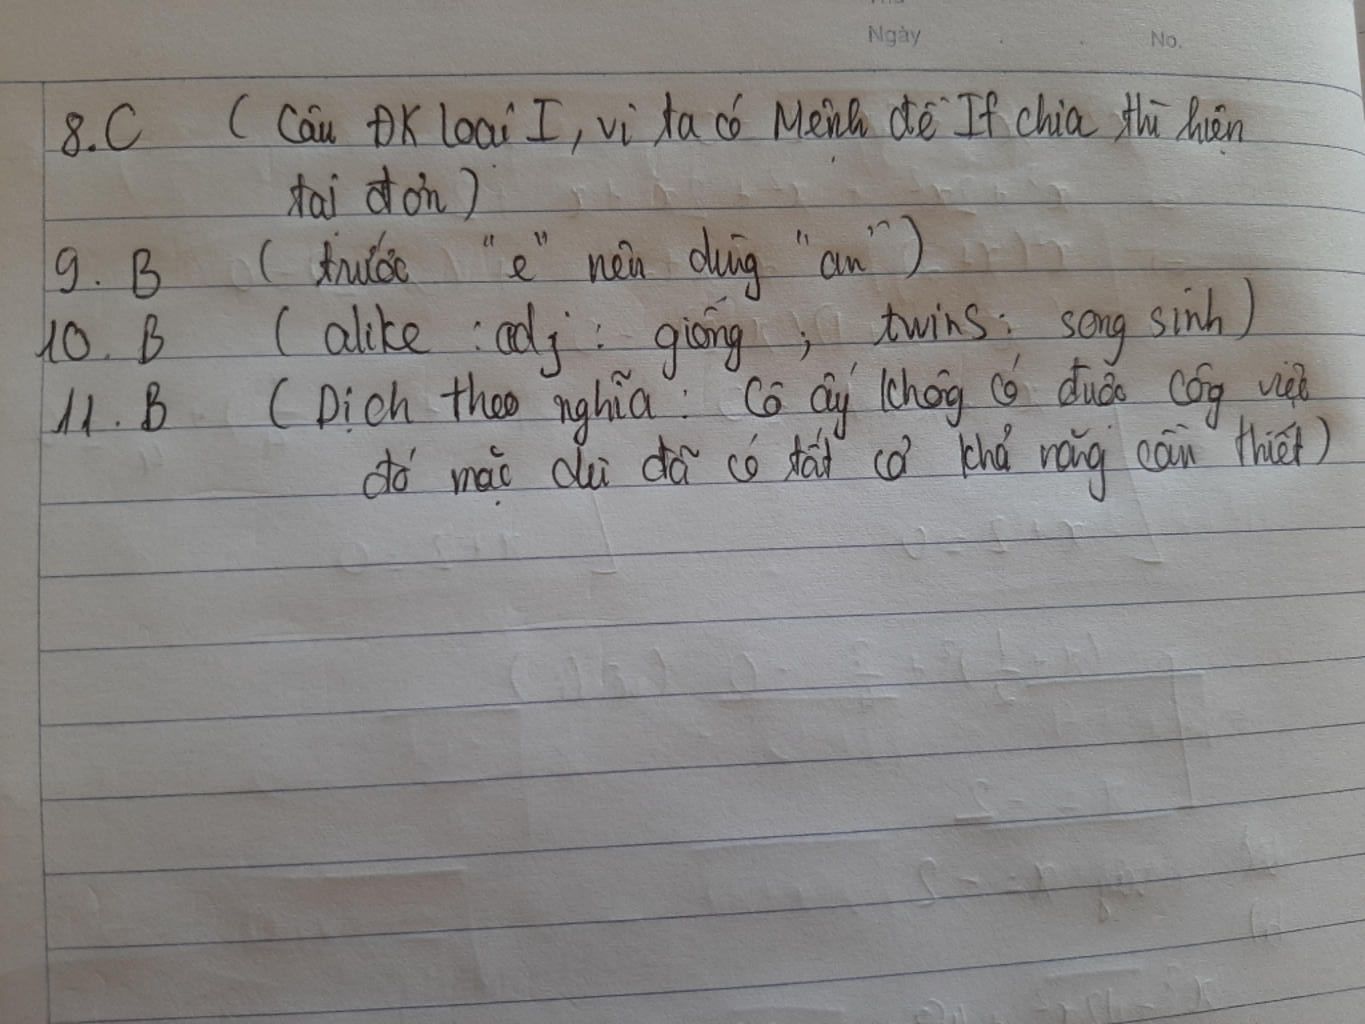 Ngày No.
8. C ( Câu ĐK loại I, vì ta có Mệnh đề If chia thì hiện
tại đơn)
9. B ( trước "e" nên dùng "an")
10. B ( alike : adj : giống ; twins : song sinh)
11. B ( Dịch theo nghĩa : Cô ấy khôg có được côg việc
đó mặc dù đã có tất cả khả năng cần thiết)